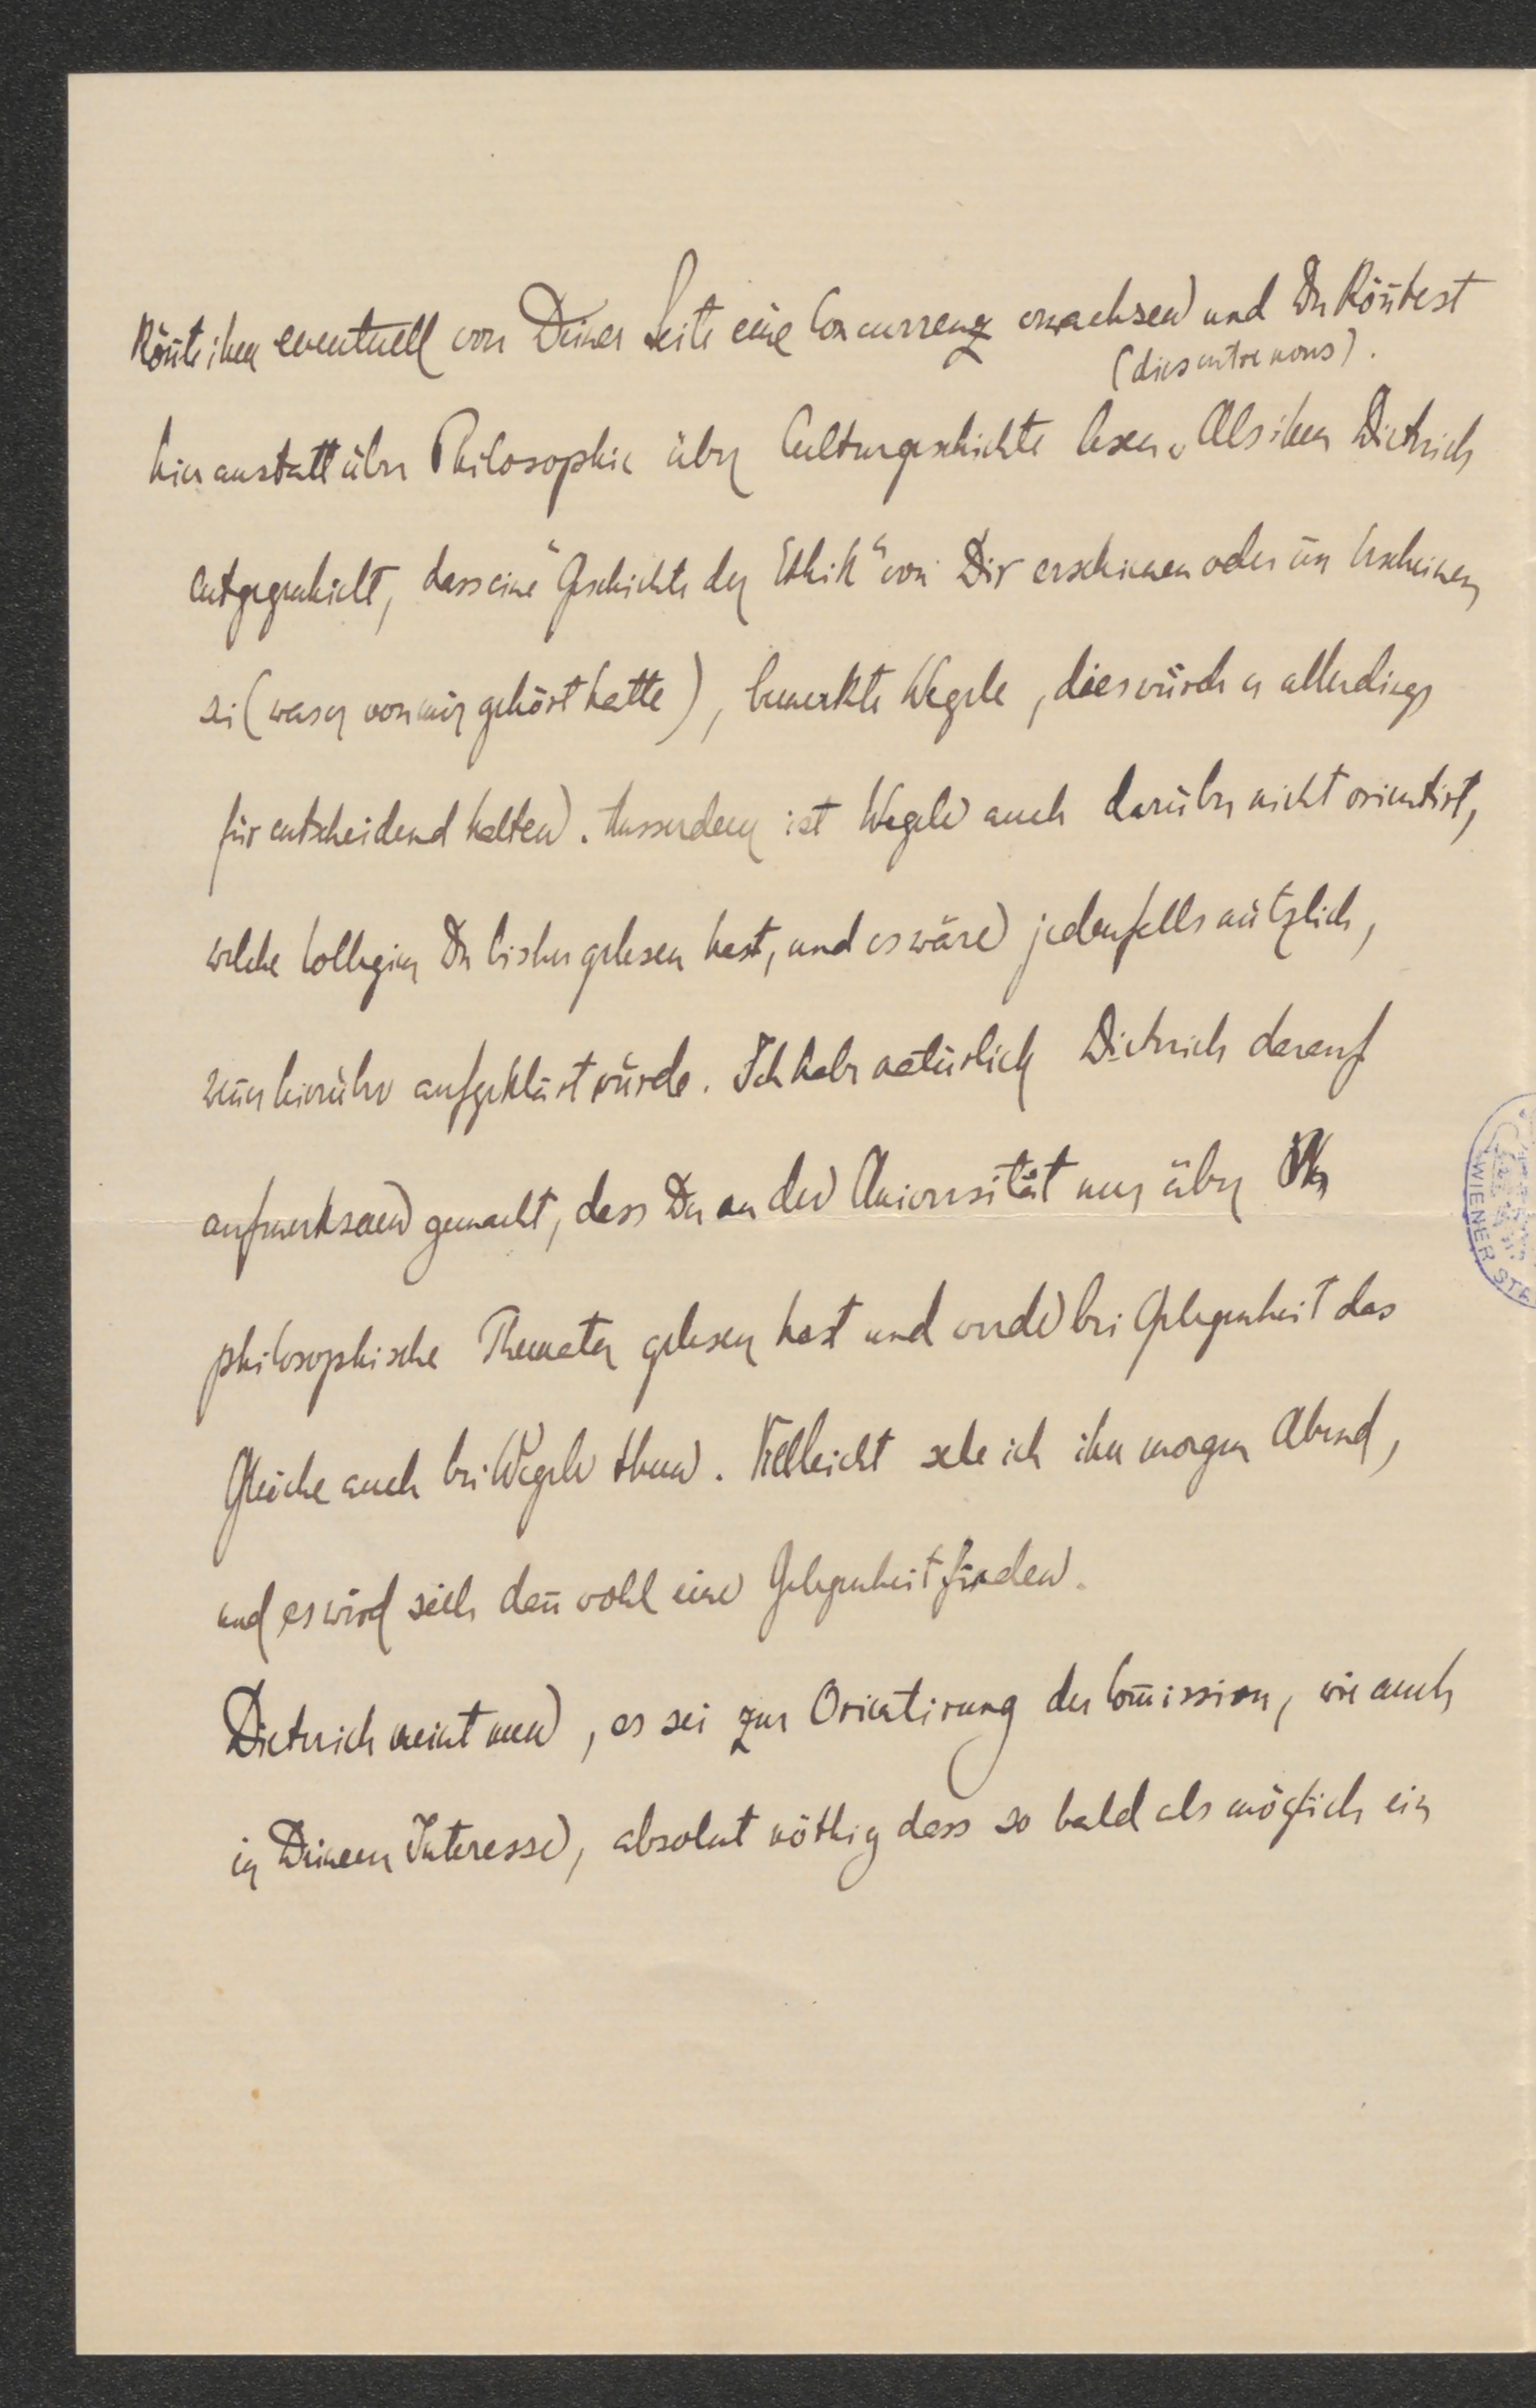 Kön̄te ihm eventuell von Deiner Seite eine Concurrenz erwachsen und Du Kön̄test
(dies entre nous).
hier anstatt über Philosophie über Culturgeschichte lesen. Als ihm Dietrich
entgegenhielt, dass eine "Geschichte der Ethik" von Dir erschienen oder im Erscheinen
sei (was er von mir gehört hatte), bemerkte Wegele, dies würde er allerdings
für entscheidend halten. Ausserdem ist Wegele auch darüber nicht orientirt,
welche Collegien Du bisher gelesen hast, und es wäre jedenfalls nützlich,
wen̄ er hierüber aufgeklärt würde. Ich habe natürlich Dietrich darauf
aufmerksam gemacht, dass Du an der Universität nur über
philosophische Themata gelesen hast und werde bei Gelegenheit das
Gleiche auch bei Wegele thun. Vielleicht sehe ich ihn morgen Abend,
und es wird sich dan̄ wohl eine Gelegenheit finden.
Dietrich meint nun, es sei zur Orientirung der Com̄ission, wie auch
in Deinem Interesse, absolut nöthig dass so bald als möglich ein
WIENER ST